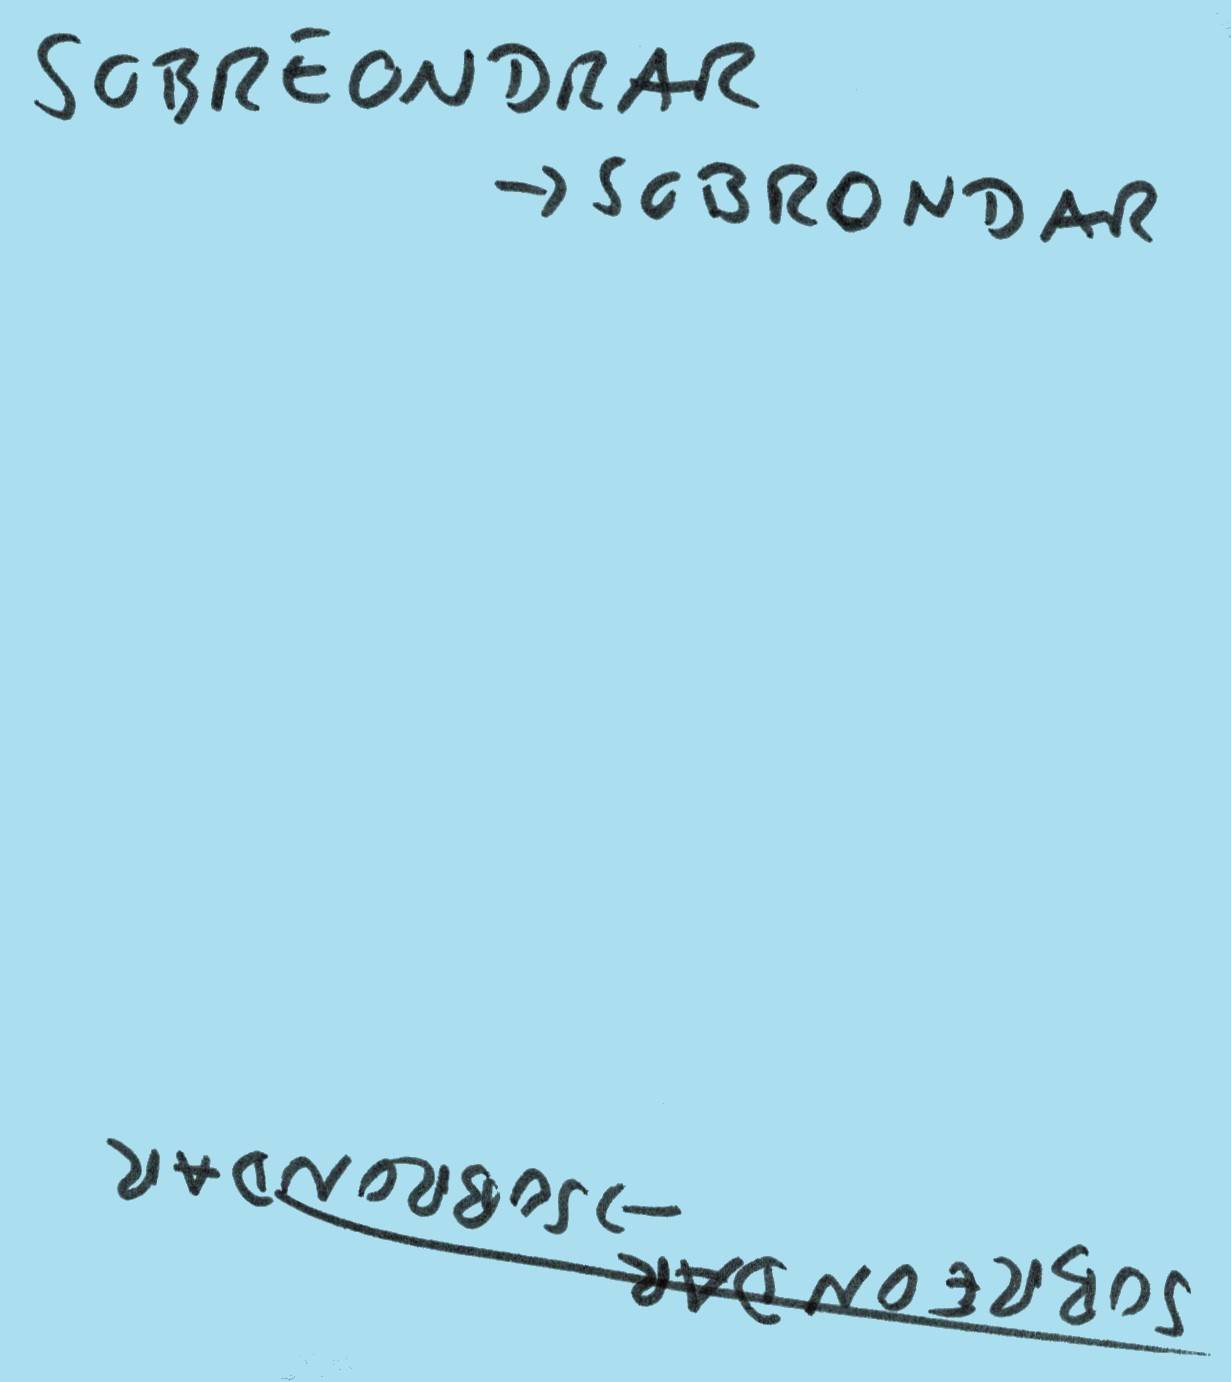 SOBREONDRAR
→ SOBRONDAR
SOBREONDAR
→ SOBRONDAR